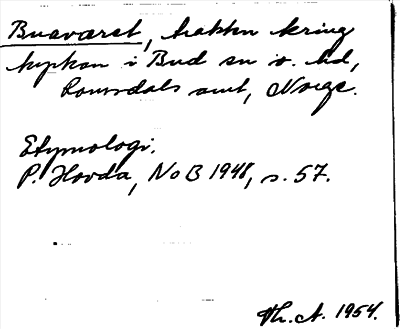 Busvaret, bakkn kring
kyrkan i Bud sn o. hd,
Romsdals amt, Norge.
Etymologi:
P. Hovda, NoB 1948, s. 57.
Th. A. 1954.